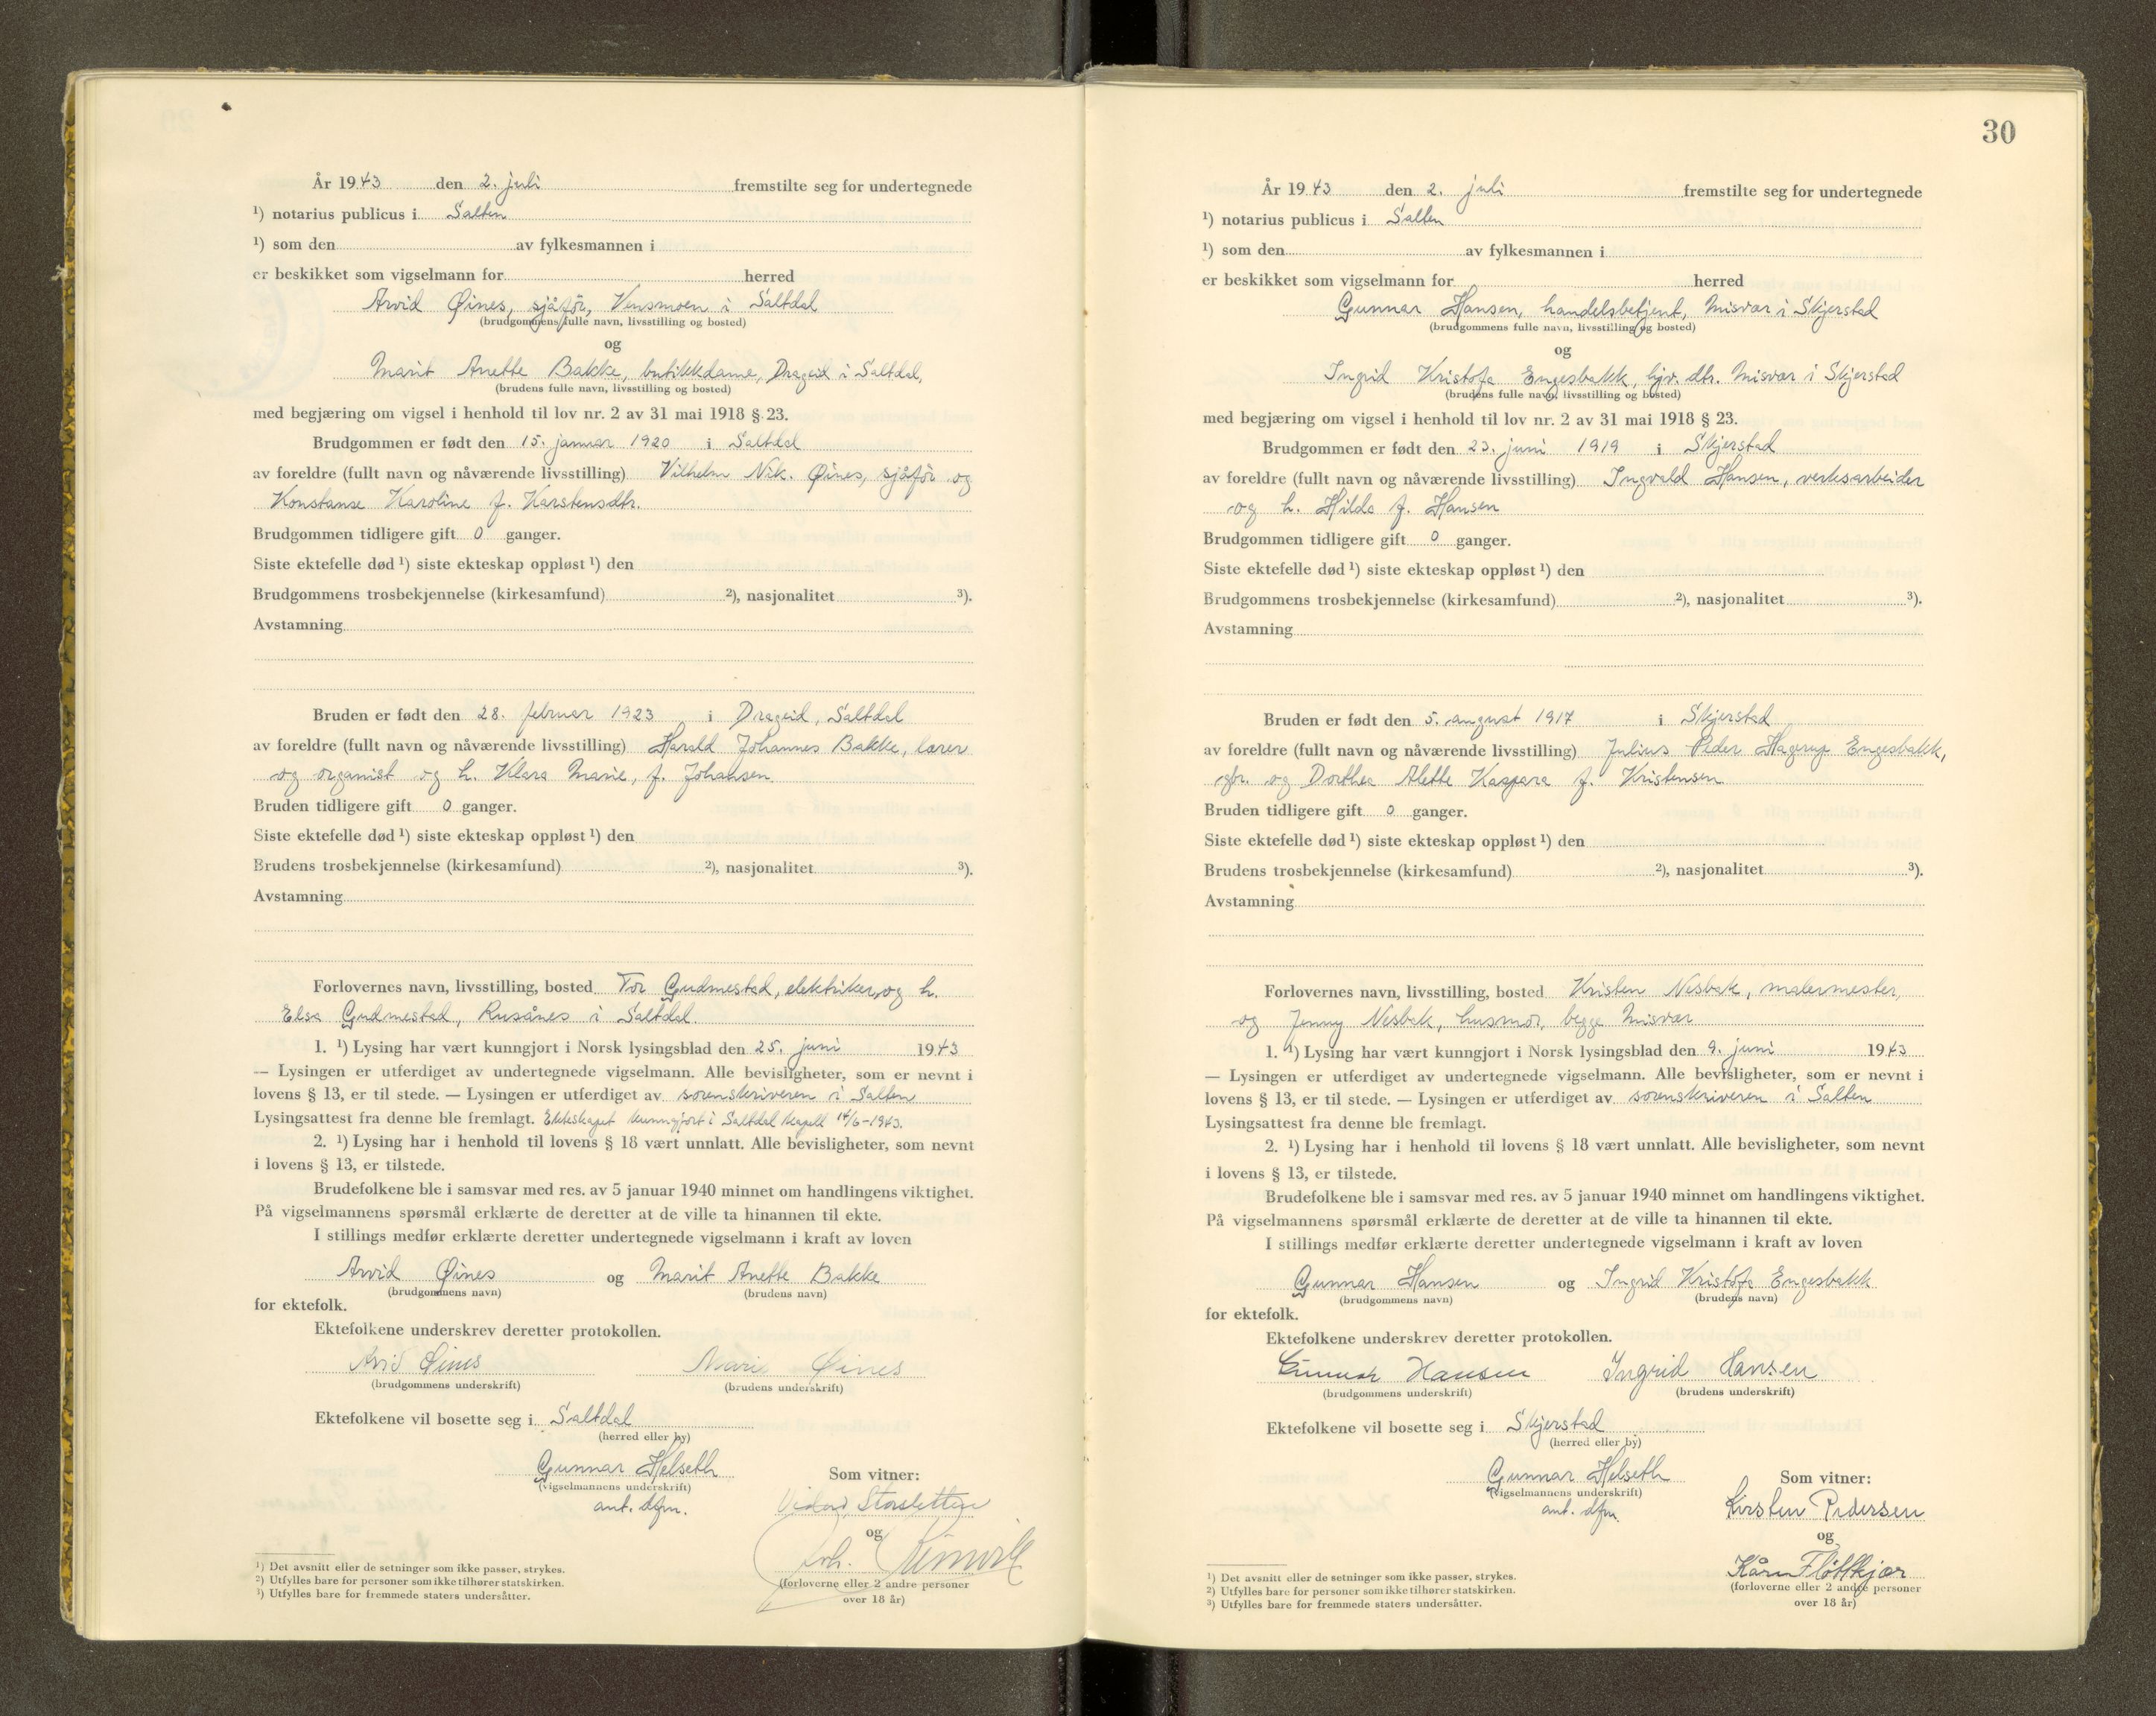 År 1943 den 2. juli fremstilte seg for undertegnede
¹) notarius publicus i Salten
¹) som den av fylkesmannen i
er beskikket som vigselmann for herred
Arvid Øines, sjåför, Vensmoen i Saltdal
(brudgommens fulle navn, livsstilling og bosted)
og
Marit Anette Bakke, butikkdame, Drageid i Saltdal,
(brudens fulle navn, livsstilling og bosted)
med begjæring om vigsel i henhold til lov nr. 2 av 31 mai 1918 § 23.
Brudgommen er født den 15. januar 1920 i Saltdal
av foreldre (fullt navn og nåværende livsstilling) Vilhelm Nik. Øines, sjåför og
Konstanse Karoline f. Karstensdtr.
Brudgommen tidligere gift 0 ganger.
Siste ektefelle død ¹) siste ekteskap oppløst ¹) den
Brudgommens trosbekjennelse (kirkesamfund) ²), nasjonalitet ³).
Avstamning
Bruden er født den 28. februar 1923 i Drageid, Saltdal
av foreldre (fullt navn og nåværende livsstilling) Harald Johannes Bakke, lærer
og organist og h. Klara Marie, f. Johansen
Bruden tidligere gift 0 ganger.
Siste ektefelle død ¹) siste ekteskap oppløst ¹) den
Brudens trosbekjennelse (kirkesamfund) ²), nasjonalitet ³).
Avstamning
Forlovernes navn, livsstilling, bosted Tor Gudmestad, elektriker, og h.
Elsa Gudmestad, Rusånes i Saltdal
1. ¹) Lysing har vært kunngjort i Norsk lysingsblad den 25. juni 1943
— Lysingen er utferdiget av undertegnede vigselmann. Alle bevisligheter, som er nevnt i
lovens § 13, er til stede. — Lysingen er utferdiget av sorenskriveren i Salten
Lysingsattest fra denne ble fremlagt. Ekteskapet kunngjort i Saltdal kapell 14/6-1943.
2. ¹) Lysing har i henhold til lovens § 18 vært unnlatt. Alle bevisligheter, som nevnt
i lovens § 13, er tilstede.
Brudefolkene ble i samsvar med res. av 5 januar 1940 minnet om handlingens viktighet.
På vigselmannens spørsmål erklærte de deretter at de ville ta hinannen til ekte.
I stillings medfør erklærte deretter undertegnede vigselmann i kraft av loven
Arvid Øines og Marit Anette Bakke
(brudgommens navn) (brudens navn)
for ektefolk.
Ektefolkene underskrev deretter protokollen.
Arvid Øines Marit Øines
(brudgommens underskrift) (brudens underskrift)
Ektefolkene vil bosette seg i Saltdal
(herred eller by)
Gunnar Helseth Som vitner:
(vigselmannens underskrift)
aut. dfm. Storsletten
og
Joh.
(forloverne eller 2 andre personer
over 18 år)
¹) Det avsnitt eller de setninger som ikke passer, strykes.
²) Utfylles bare for personer som ikke tilhører statskirken.
³) Utfylles bare for fremmede staters undersåtter.
30
År 1943 den 2. juli fremstilte seg for undertegnede
¹) notarius publicus i Salten
¹) som den av fylkesmannen i
er beskikket som vigselmann for herred
Gunnar Hansen, handelsbetjent, Misvær i Skjerstad
(brudgommens fulle navn, livsstilling og bosted)
og
Ingrid Kristofa Engesbakk, hjv. dtr. Misvær i Skjerstad
(brudens fulle navn, livsstilling og bosted)
med begjæring om vigsel i henhold til lov nr. 2 av 31 mai 1918 § 23.
Brudgommen er født den 23. juni 1919 i Skjerstad
av foreldre (fullt navn og nåværende livsstilling) Ingvald Hansen, verksarbeider
og h. Hilda f. Hansen
Brudgommen tidligere gift 0 ganger.
Siste ektefelle død ¹) siste ekteskap oppløst ¹) den
Brudgommens trosbekjennelse (kirkesamfund) ²), nasjonalitet ³).
Avstamning
Bruden er født den 5. august 1917 i Skjerstad
av foreldre (fullt navn og nåværende livsstilling) Julius Peder Hagerup Engesbakk,
gbr. og Dorthea Alette Kaspara f. Kristensen
Bruden tidligere gift 0 ganger.
Siste ektefelle død ¹) siste ekteskap oppløst ¹) den
Brudens trosbekjennelse (kirkesamfund) ²), nasjonalitet ³).
Avstamning
Forlovernes navn, livsstilling, bosted Kristen Nesbak, malermester,
og Jenny Nesbak, husmor, begge Misvær
1. ¹) Lysing har vært kunngjort i Norsk lysingsblad den 9. juni 1943
— Lysingen er utferdiget av undertegnede vigselmann. Alle bevisligheter, som er nevnt i
lovens § 13, er til stede. — Lysingen er utferdiget av sorenskriveren i Salten
Lysingsattest fra denne ble fremlagt.
2. ¹) Lysing har i henhold til lovens § 18 vært unnlatt. Alle bevisligheter, som nevnt
i lovens § 13, er tilstede.
Brudefolkene ble i samsvar med res. av 5 januar 1940 minnet om handlingens viktighet.
På vigselmannens spørsmål erklærte de deretter at de ville ta hinannen til ekte.
I stillings medfør erklærte deretter undertegnede vigselmann i kraft av loven
Gunnar Hansen og Ingrid Kristofa Engesbakk
(brudgommens navn) (brudens navn)
for ektefolk.
Ektefolkene underskrev deretter protokollen.
Gunnar Hansen Ingrid Hansen
(brudgommens underskrift) (brudens underskrift)
Ektefolkene vil bosette seg i Skjerstad
(herred eller by)
Gunnar Helseth Som vitner:
(vigselmannens underskrift)
aut. dfm. Kirsten Pedersen
og
Kåre Fløttkjær
(forloverne eller 2 andre personer
over 18 år)
¹) Det avsnitt eller de setninger som ikke passer, strykes.
²) Utfylles bare for personer som ikke tilhører statskirken.
³) Utfylles bare for fremmede staters undersåtter.